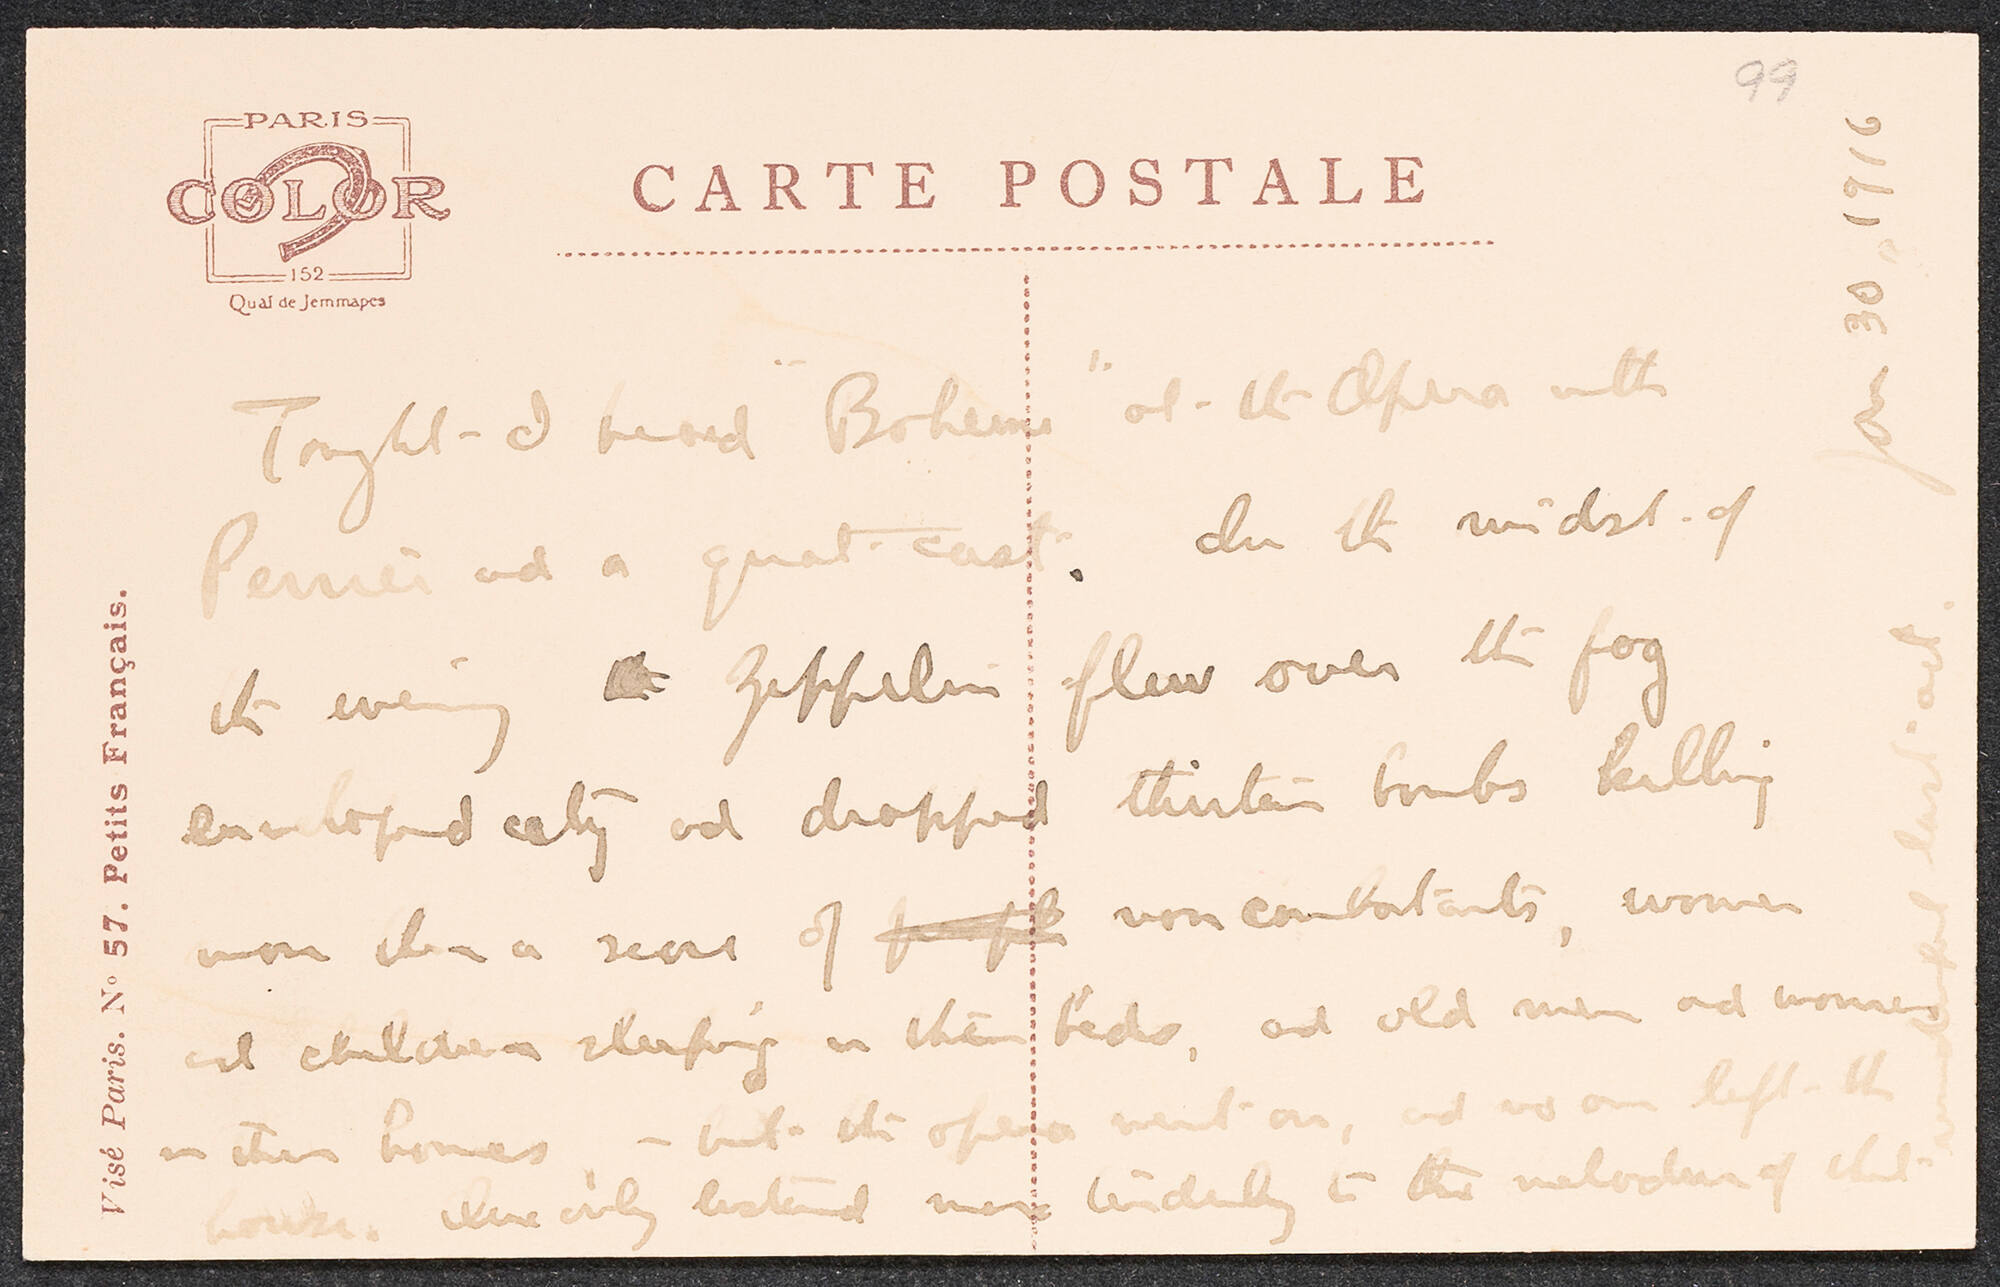 99
PARIS
COLOR
152
Quai de Jemmapes
CARTE POSTALE
Jan 30, 1916
Tonight I heard "Boheme" at the Opera with
Perrier and a great cast. In the midst of
the evening Zeppelin flew over the fog
enveloped city and dropped thirteen bombs killing
more than a score of people non combatants, women
and children sleeping in their beds, and old men and women
in their homes - but the opera went on, and no one left the
house. They only listened more tenderly to the melodies of that
wonderful last act.
Visé Paris. Nº 57. Petits Français.